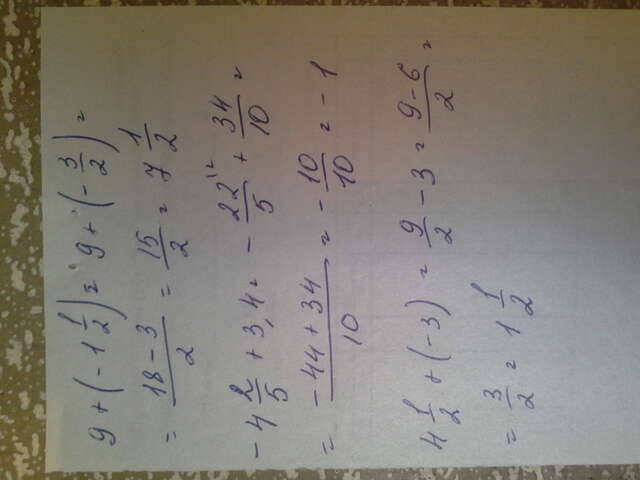 9 + (-1 1/2) = 9 + (-3/2) =
= (18 - 3)/2 = 15/2 = 7 1/2
-4 2/5 + 3,4 = -22/5 \2 + 34/10 =
= (-44 + 34)/10 = -10/10 = -1
4 1/2 + (-3) = 9/2 - 3 = (9 - 6)/2 =
= 3/2 = 1 1/2